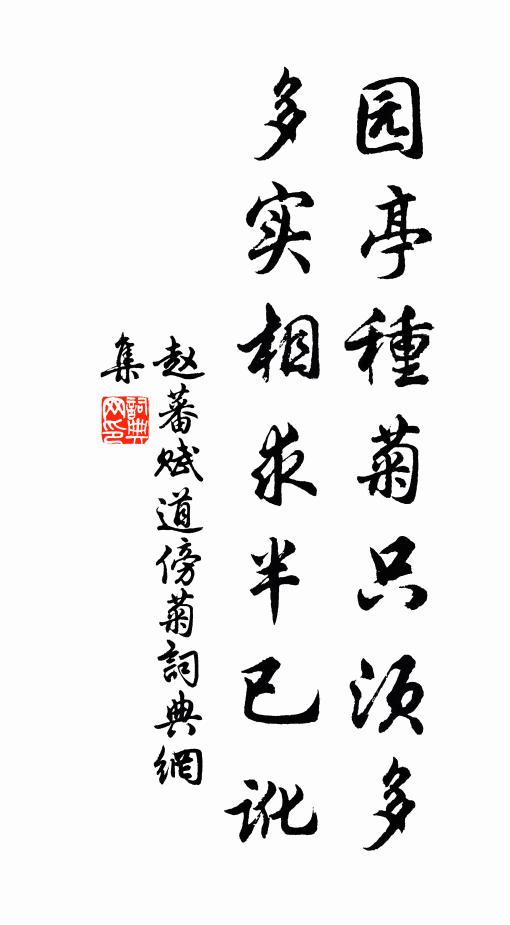 园亭種菊只须多
多实相求半已讹
赵蕃赋道傍菊詞典網
集
詞典网印